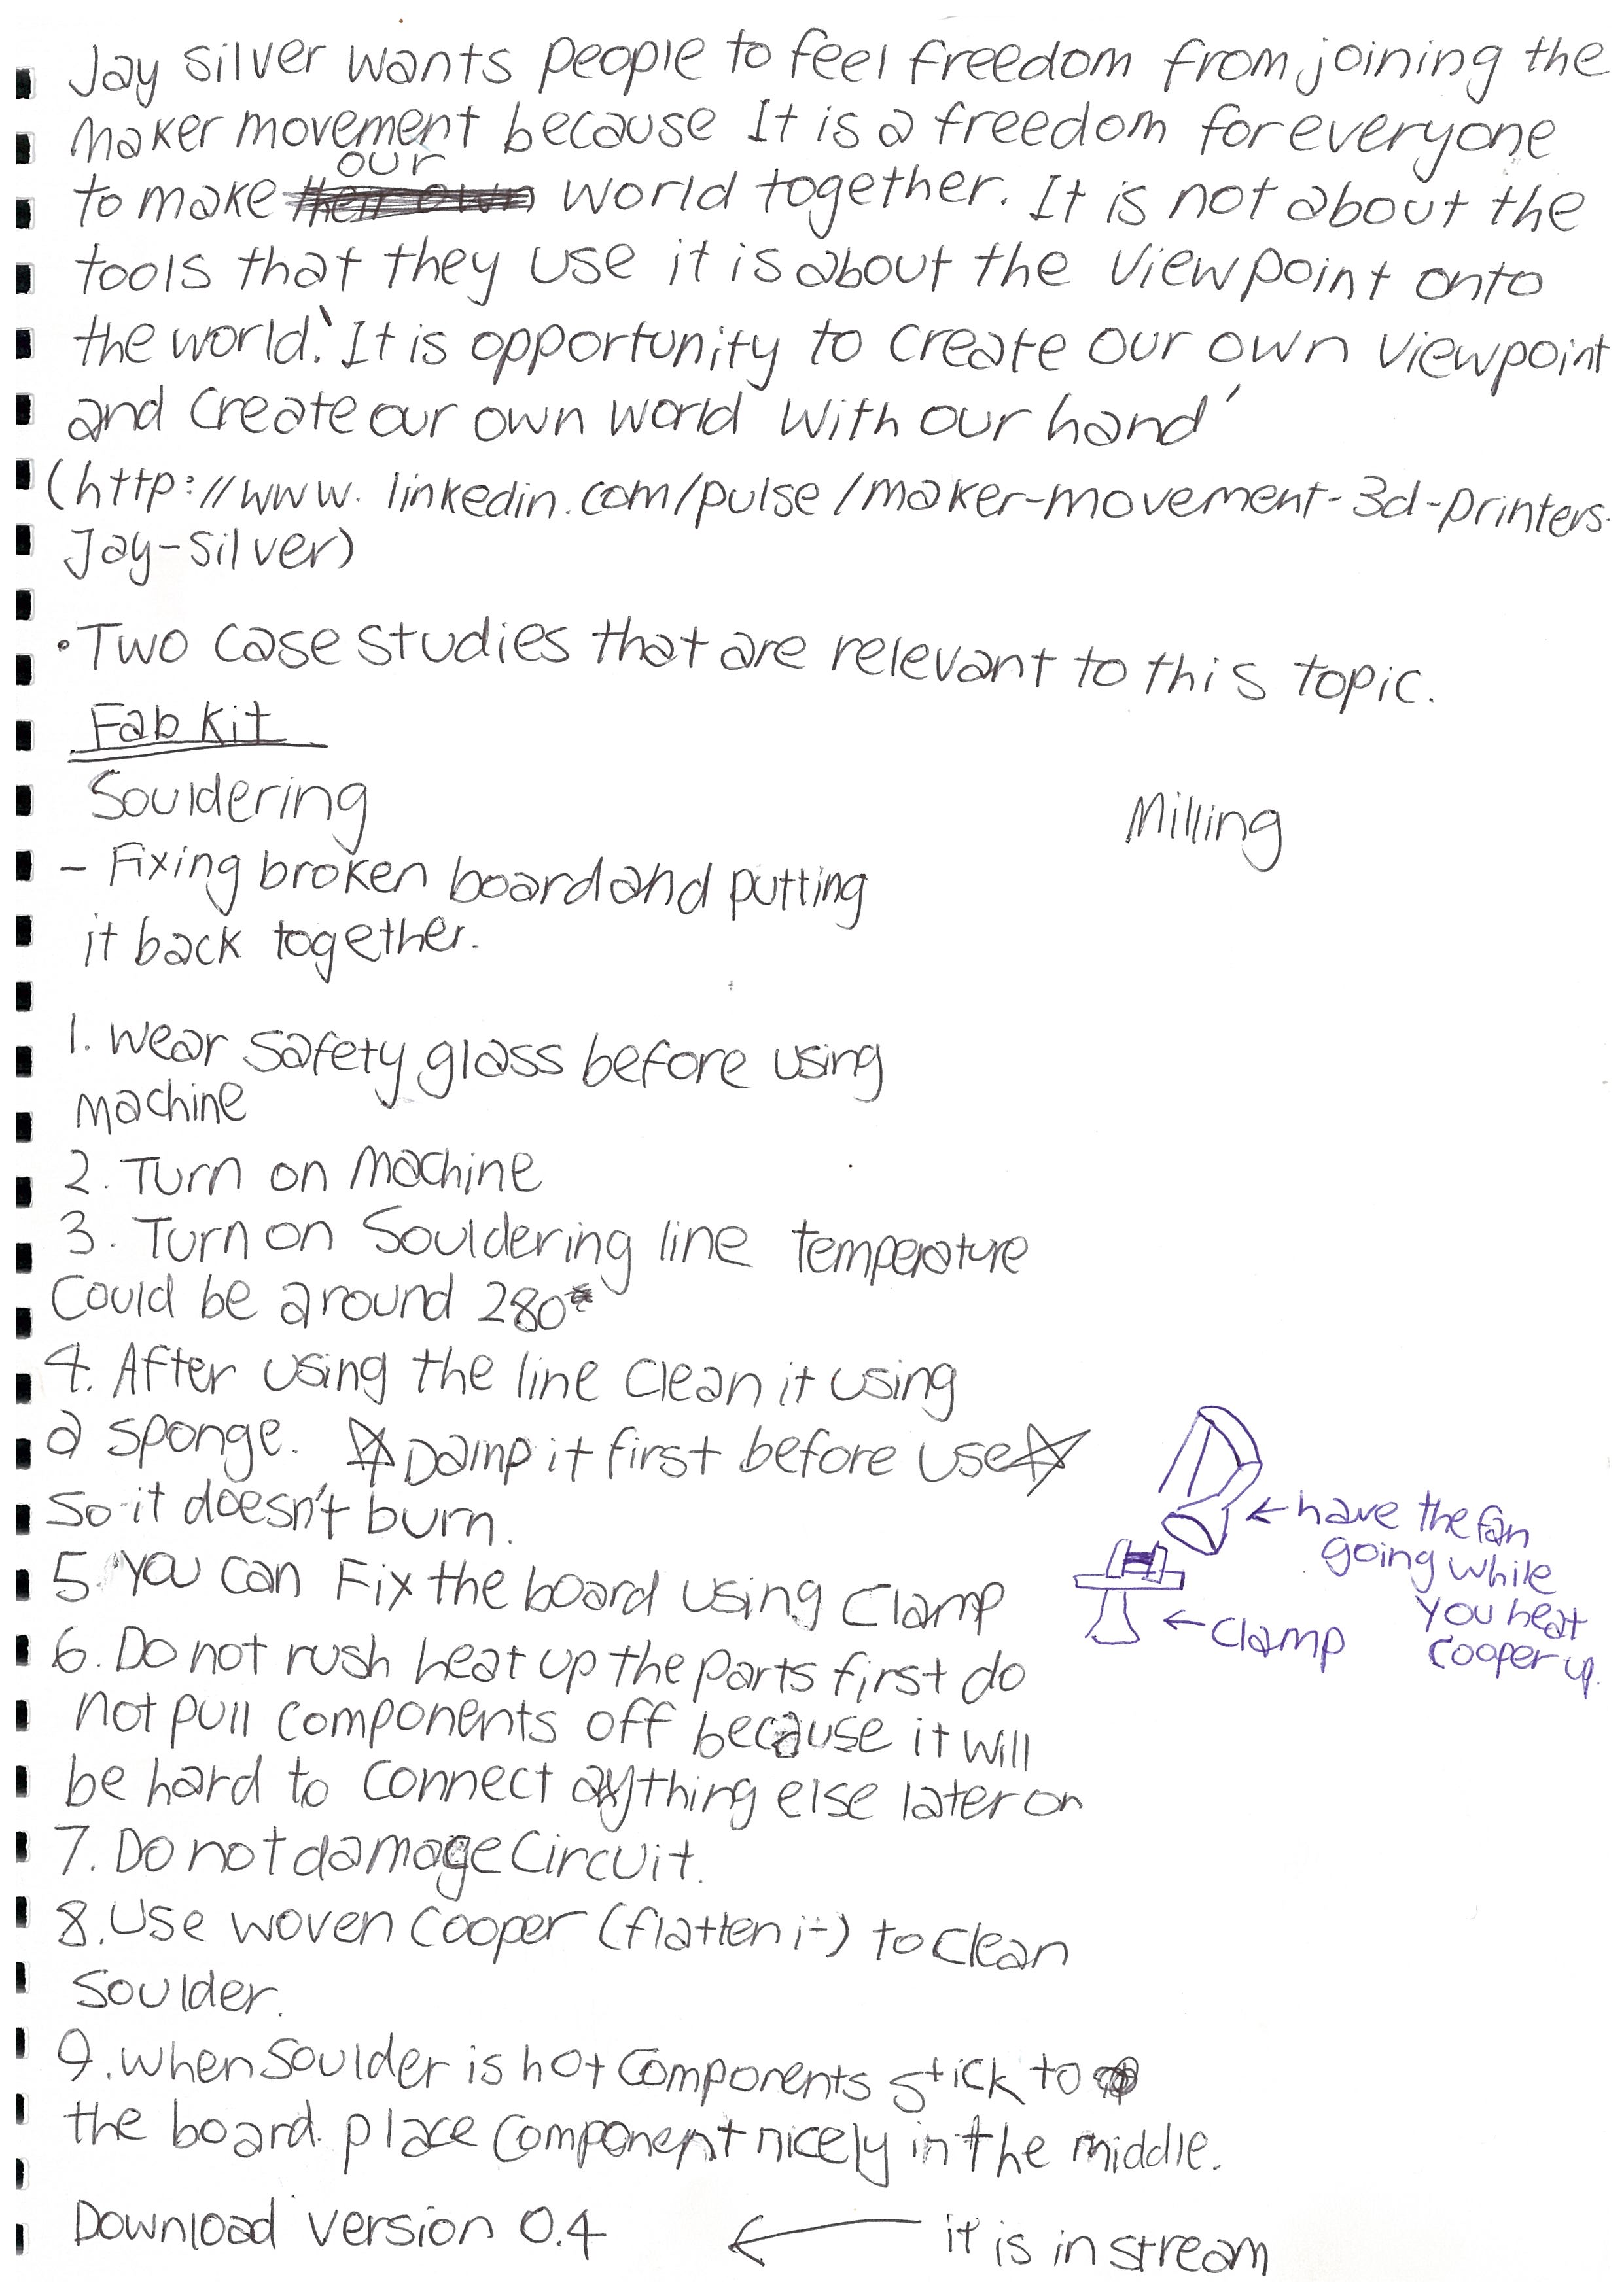 Jay Silver wants people to feel freedom from joining the
maker movement because It is a freedom for everyone
to make our world together. It is not about the
tools that they use it is about the viewpoint onto
the world.' It is opportunity to create our own viewpoint
and create our own world with our hand'
(http://www.linkedin.com/pulse/maker-movement-3d-printers-
Jay-Silver)
• Two case studies that are relevant to this topic.
Fab kit
Souldering
Milling
- Fixing broken board and putting
it back together.
1. Wear safety glass before using
machine
2. Turn on machine
3. Turn on Souldering line temperature
could be around 280
4. After using the line clean it using
a sponge. ☆ Damp it first before use ☆
so it doesn't burn.
5. You can Fix the board using clamp
6. Do not rush heat up the parts first do
not pull components off because it will
be hard to connect anything else later on
7. Do not damage circuit.
8. Use woven cooper (flatten it) to clean
Soulder.
9. when Soulder is hot components stick to
the board. place component nicely in the middle.
Download version 0.4 ← it is in stream
← have the fan
going while
you heat
cooper up.
← clamp